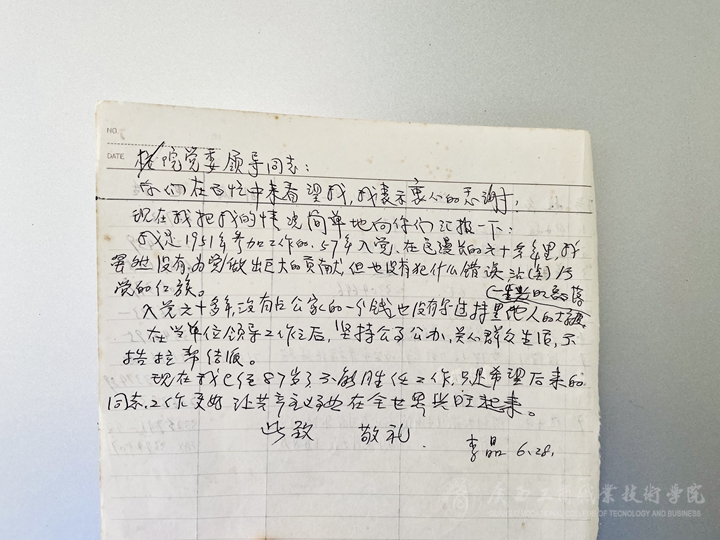 NO.
DATE
院党委领导同志:
你们在百忙中来看望我,我表示衷心的感谢!
现在我把我的情况简单地向你们汇报一下:
我是1951年参加工作的.59年入党.在这漫长的六十多年里,我
虽然没有为党做出巨大的贡献,但也没有犯什么错误沾(玷)污
党的红旗。
入党六十多年,没有占公家的一个钱也没有
在当单位领导工作之后,坚持公事公办,关心群众生活,不
搞拉帮结派。
现在我已经87岁了不能胜任工作,只是希望后来的
同志,工作更好 让共产主义事业在全世界兴旺起来。
此致 敬礼.
李晶 6.28.
广西工商职业技術学院
COLLEGE OF TECNOLOGY AND BUSINESS